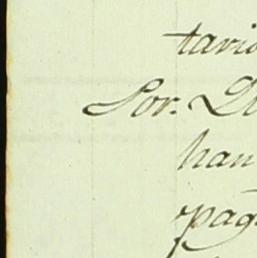 tario
Sor. D
han
pag